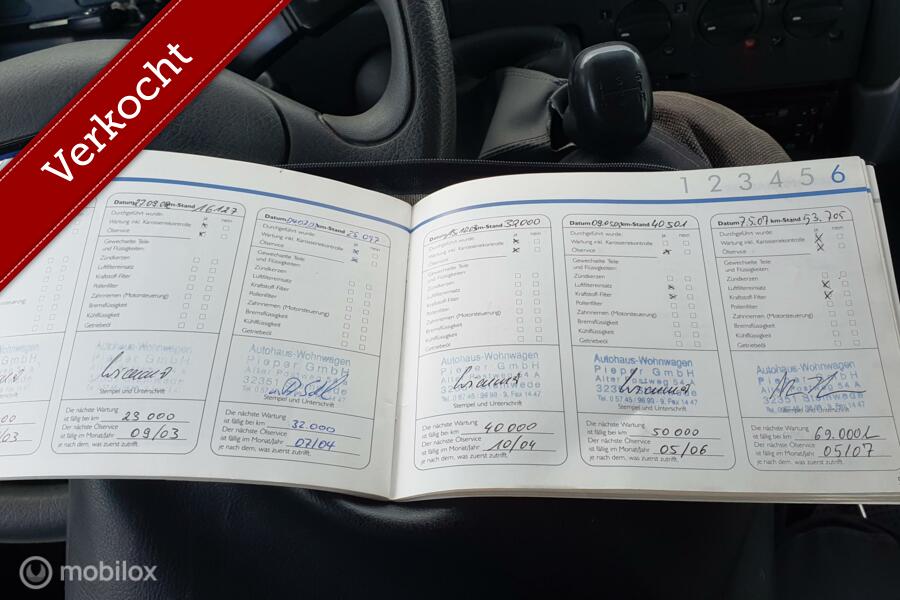 Verkocht
1 2 3 4 5 6
km-Stand 16127
Durchgeführt wurde: ja nein
Wartung inkl. Karosseriekontrolle
Ölservice
Gewechselte Teile
und Flüssigkeiten:
Zündkerzen
Luftfiltereinsatz
Kraftstoff-Filter
Pollenfilter
Zahnriemen (Motorsteuerung)
Bremsflüssigkeit
Kühlflüssigkeit
Getriebeöl
Autohaus-Wohnwagen
Pieper GmbH
Stempel und Unterschrift
Die nächste Wartung
ist fällig bei km 23 000
Der nächste Ölservice
ist fällig im Monat/Jahr 09/03
je nach dem, was zuerst zutrifft.
Datum km-Stand
Durchgeführt wurde: ja nein
Wartung inkl. Karosseriekontrolle
Ölservice
Gewechselte Teile
und Flüssigkeiten:
Zündkerzen
Luftfiltereinsatz
Kraftstoff-Filter
Pollenfilter
Zahnriemen (Motorsteuerung)
Bremsflüssigkeit
Kühlflüssigkeit
Getriebeöl
Autohaus-Wohnwagen
Pieper GmbH
Stempel und Unterschrift
Die nächste Wartung
ist fällig bei km 32.000
Der nächste Ölservice
ist fällig im Monat/Jahr 07/04
je nach dem, was zuerst zutrifft.
Datum km-Stand 39000
Durchgeführt wurde: ja nein
Wartung inkl. Karosseriekontrolle
Ölservice
Gewechselte Teile
und Flüssigkeiten:
Zündkerzen
Luftfiltereinsatz
Kraftstoff-Filter
Pollenfilter
Zahnriemen (Motorsteuerung)
Bremsflüssigkeit
Kühlflüssigkeit
Getriebeöl
Autohaus-Wohnwagen
Pieper GmbH
Alter Postweg 54 A
Stempel und Unterschrift
Die nächste Wartung
ist fällig bei km 40000
Der nächste Ölservice
ist fällig im Monat/Jahr 10/04
je nach dem, was zuerst zutrifft.
Datum km-Stand 40501
Durchgeführt wurde: ja nein
Wartung inkl. Karosseriekontrolle
Ölservice
Gewechselte Teile
und Flüssigkeiten:
Zündkerzen
Luftfiltereinsatz
Kraftstoff-Filter
Pollenfilter
Zahnriemen (Motorsteuerung)
Bremsflüssigkeit
Kühlflüssigkeit
Getriebeöl
Autohaus-Wohnwagen
Pieper GmbH
Alter Postweg 54 A
Tel. 0 57 45 / 96 99 - 9, Fax 14 47
Stempel und Unterschrift
Die nächste Wartung
ist fällig bei km 50000
Der nächste Ölservice
ist fällig im Monat/Jahr 05/06
je nach dem, was zuerst zutrifft.
Datum 7.5.07 km-Stand 53.705
Durchgeführt wurde: ja nein
Wartung inkl. Karosseriekontrolle
Ölservice
Gewechselte Teile
und Flüssigkeiten:
Zündkerzen
Luftfiltereinsatz
Kraftstoff-Filter
Pollenfilter
Zahnriemen (Motorsteuerung)
Bremsflüssigkeit
Kühlflüssigkeit
Getriebeöl
Autohaus-Wohnwagen
Pieper GmbH
Alter Postweg 54 A
Stempel und Unterschrift
Die nächste Wartung
ist fällig bei km 69.000
Der nächste Ölservice
ist fällig im Monat/Jahr 05/07
je nach dem, was zuerst zutrifft.
mobilox